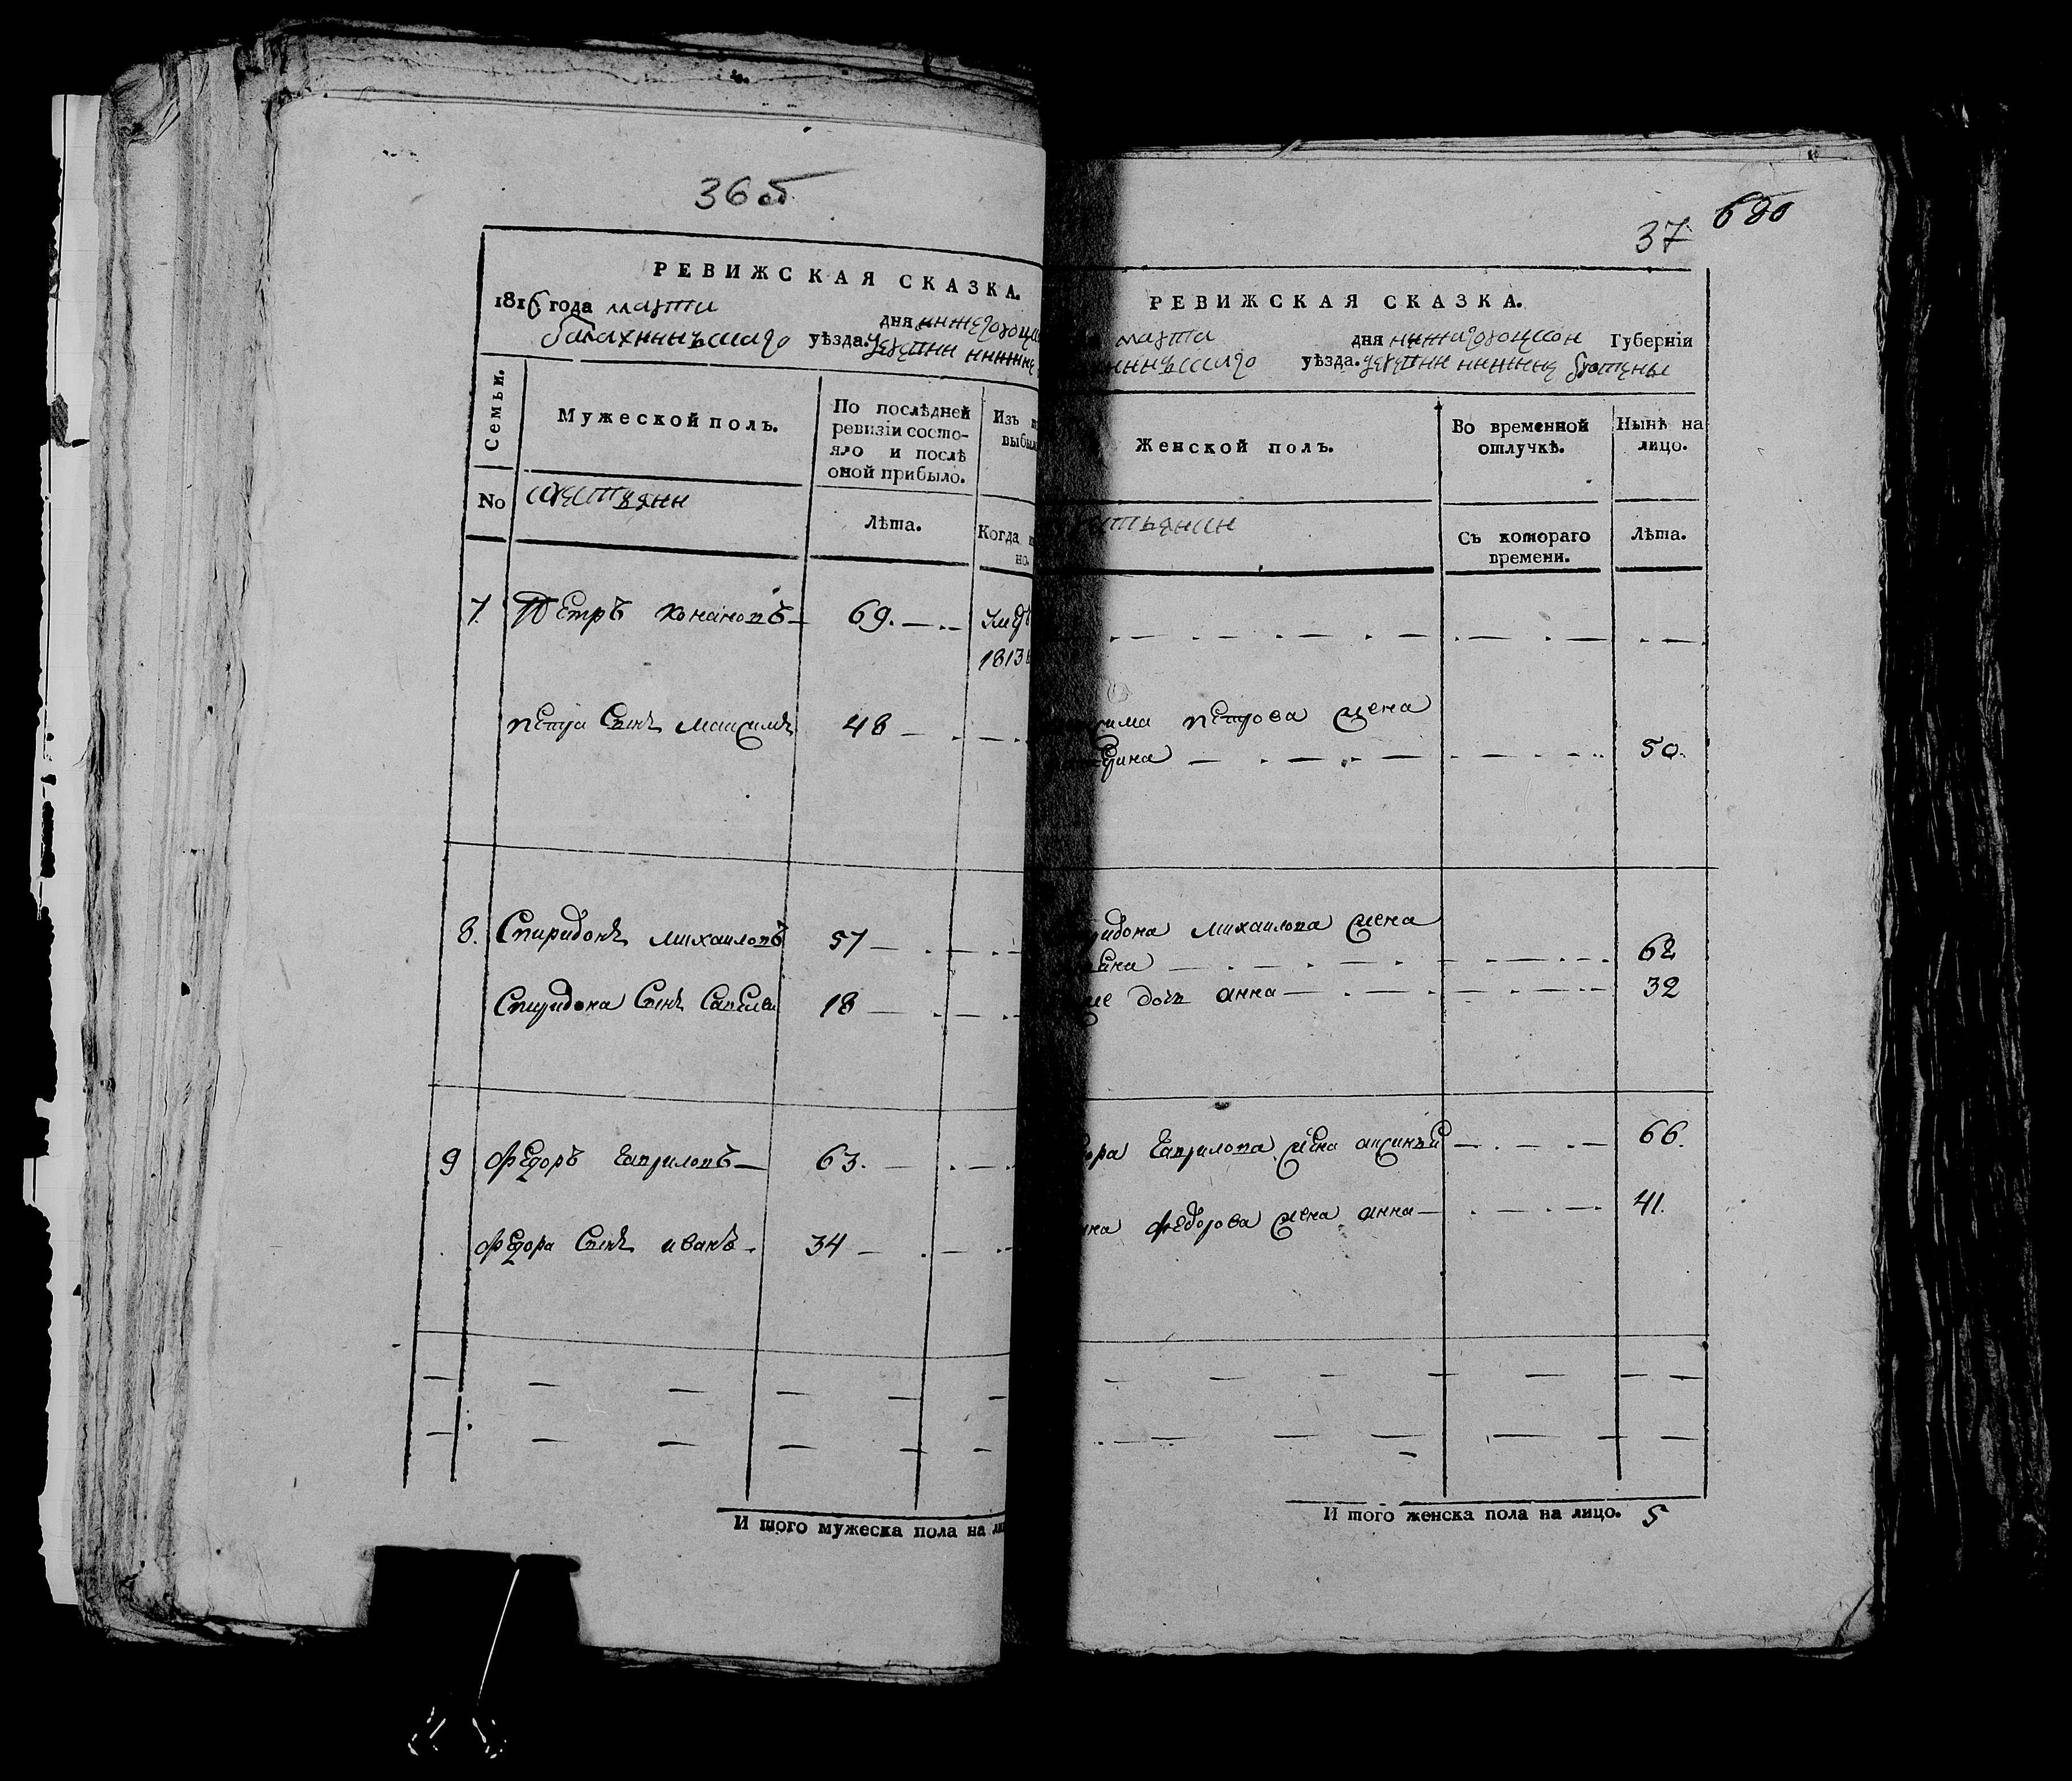 36 об
РЕВИЖСКАЯ СКАЗКА.
1816 года марта дня нижегороцко
балахнинъскаго уѣзда.
Семьи.
Мужеской полъ.
По послѣдней ревизіи состо-яло и послѣ оной прибыло.
Изъ
выбы
No
Лѣта.
Когда
но.
7. Петръ кононовъ 69.
1813
петра Сынъ максимъ 48
8. Спиридонъ михаиловъ 57
Спиридона Сынъ Савелеи 18
9 Федоръ Гавриловъ 63.
Федора Сынъ иванъ 34
И того мужеска пола на ли
680
37
РЕВИЖСКАЯ СКАЗКА.
марта дня нижегороцкои Губерніи
уѣзда.
Женской полъ.
Во временной отлучкѣ.
Нынѣ на лицо.
Съ котораго времени.
Лѣта.
сима петрова жена
50.
ридона михаилова жена
62
дочь анна 32
ора Гаврилова жена аксинья 66.
на федорова жена анна 41.
И того женска пола на лицо. 5